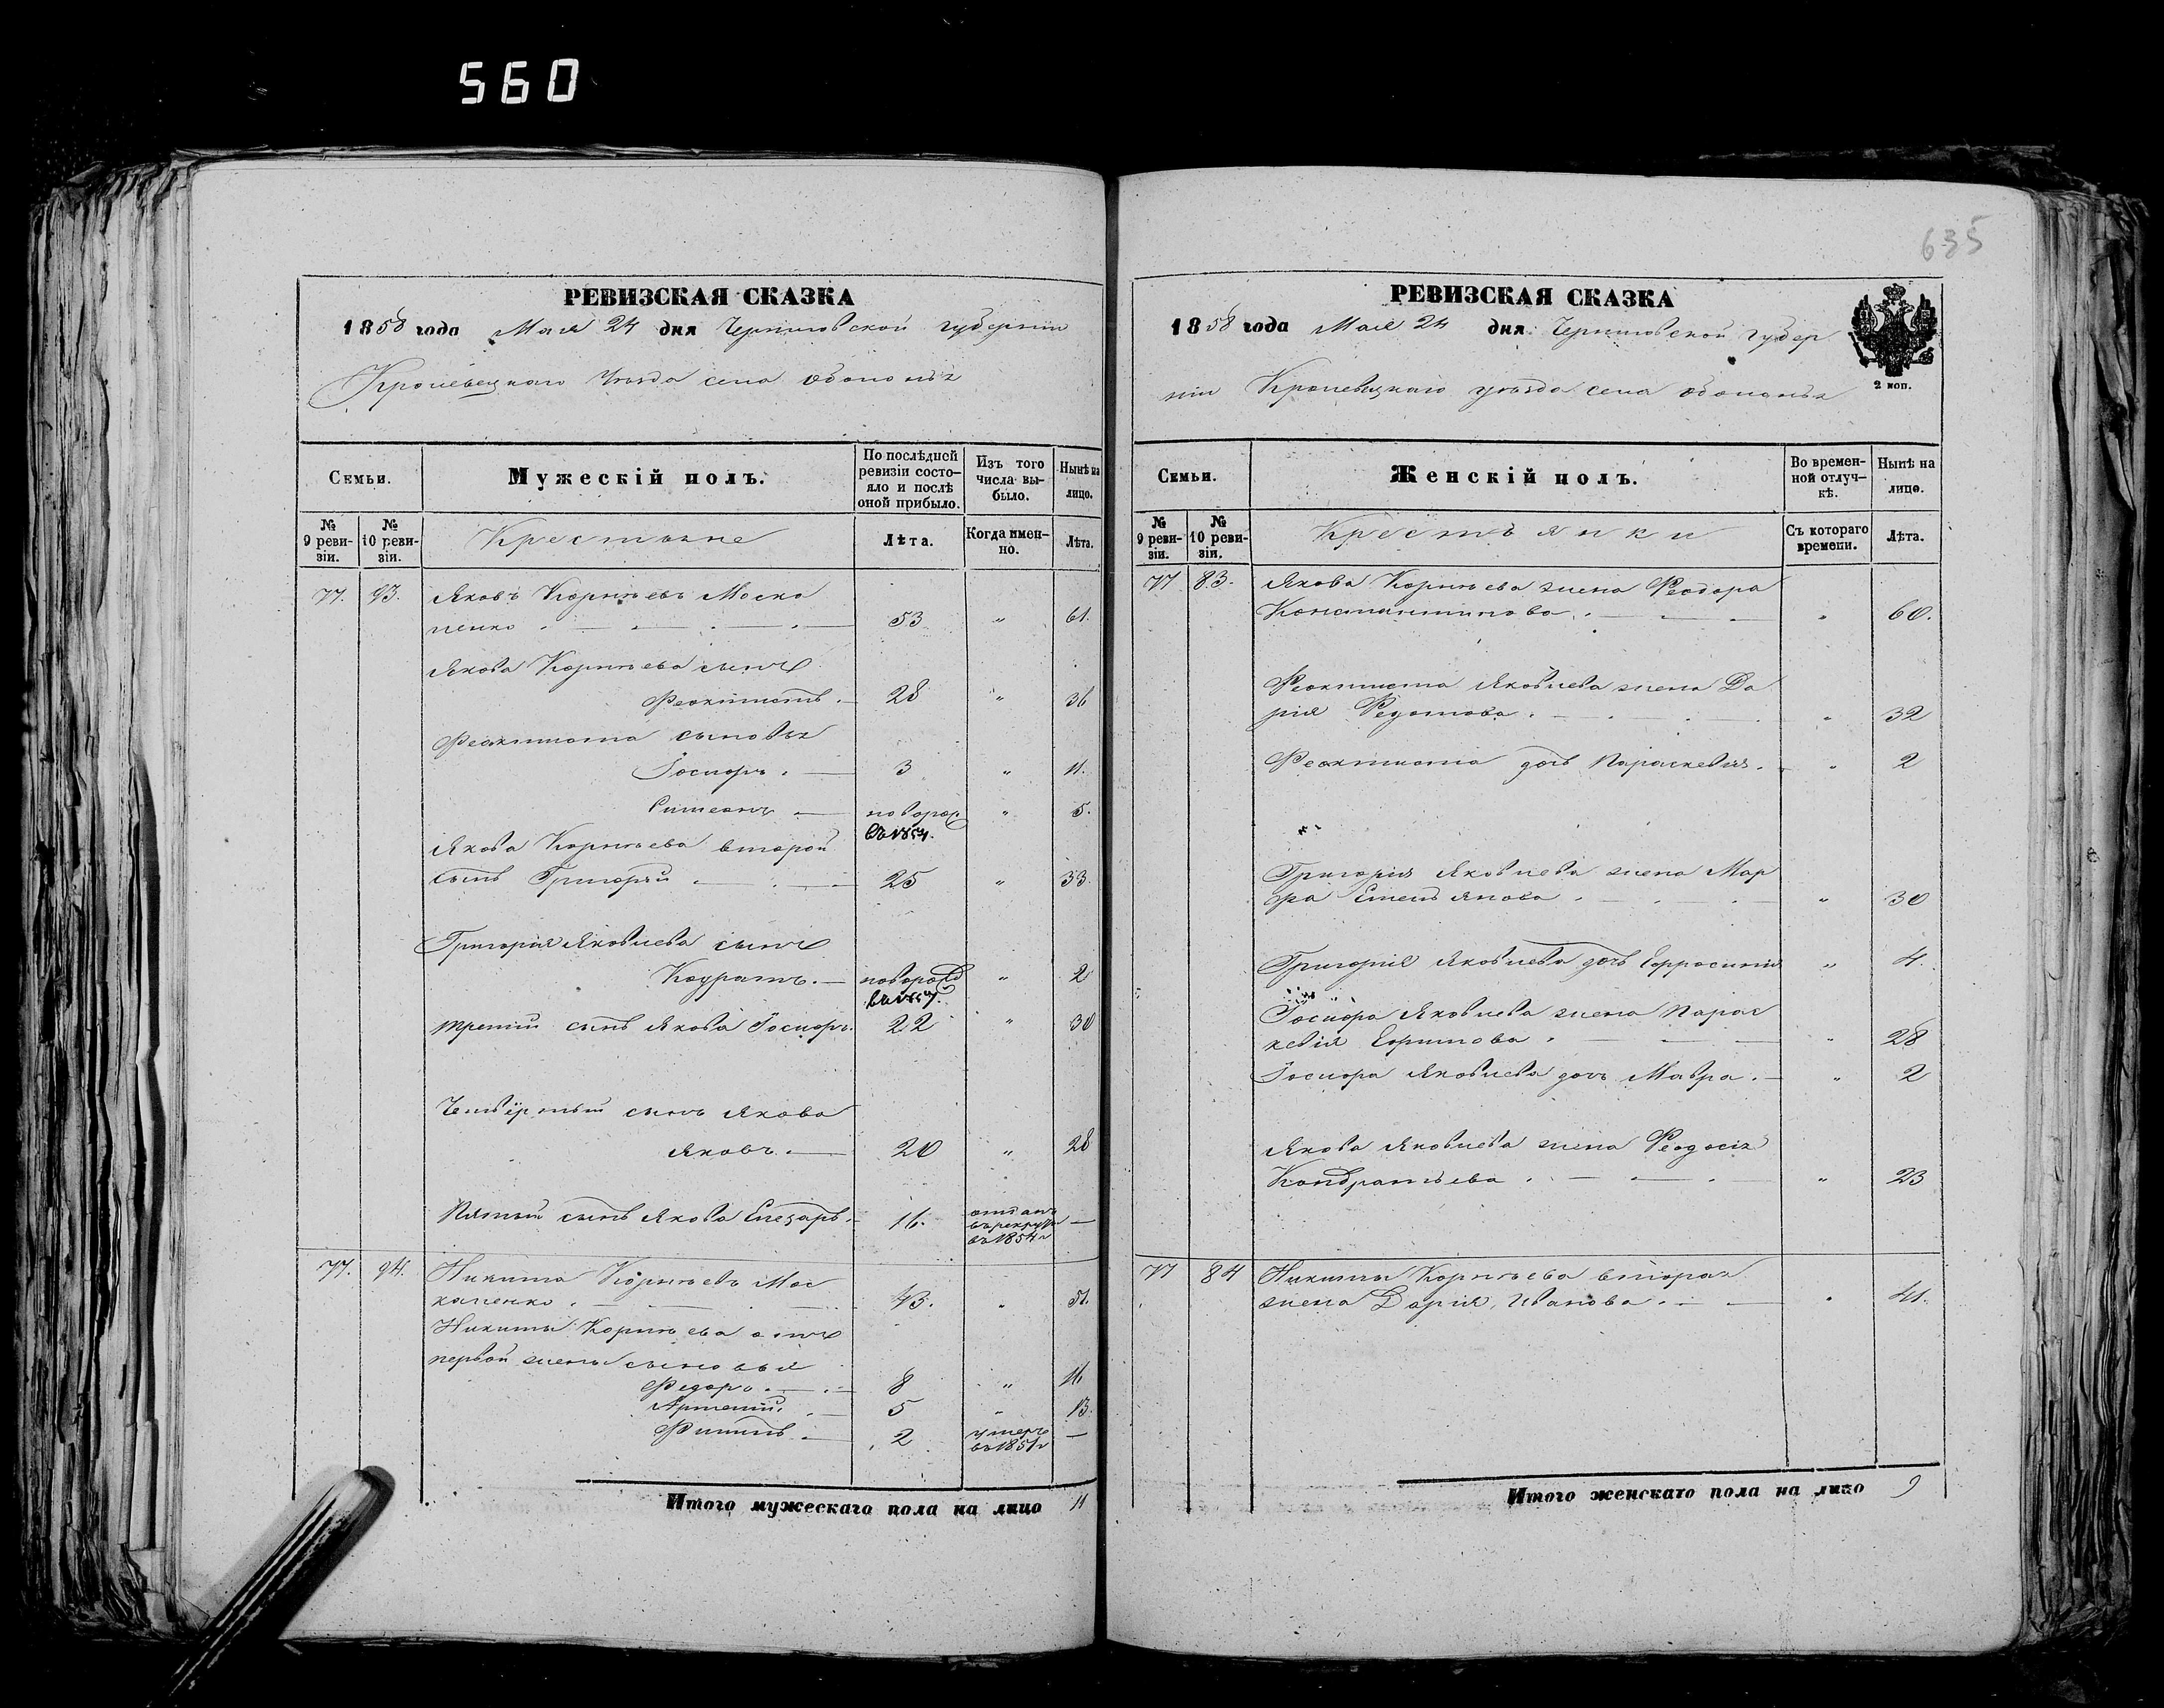 560
635
РЕВИЗСКАЯ СКАЗКА
1858 года Мая 24 дня Черниговской губернии
Кролевецкаго Уѣзда села
Семьи.
Мужескій полъ.
По послѣдней ревизіи состояло и послѣ оной прибыло.
Изъ того числа выбыло.
Нынѣ на лицо.
№ 9 ревизіи.
№ 10 ревизіи.
Крестьяне
Лѣта.
Когда именно.
Лѣта.
77. 93. Яковъ Корнѣевъ Моска
ленко 53 " 61.
Якова Корнѣева сынъ
Феоктистъ. 28 " 36
Феоктиста сыновья
Іосифъ. 3 " 11.
Симеонъ новорож. " 5.
Якова Корнѣева второй
сынъ Григорій 25 " 33.
Григорія Яковлева сынъ
Кодратъ. новорожд " 2
третій сынъ Якова Іосифъ. 22 " 30
Четвёртый сынъ Якова
Яковъ. 20 " 28
Пятый сынъ Якова 16. отданъ
въ рекруты
въ 1854 г —
77. 94. Никита Корнѣевъ Мос
каленко. 43. " 51.
Никиты Корнѣева отъ
первой жены сыновья
Федоръ. 8 " 16
5 " 13.
Филипъ. 2 умеръ
въ 1851 г —
Итого мужескаго пола на лицо 11
РЕВИЗСКАЯ СКАЗКА
1858 года Мая 24 дня Черниговской губер
ніи Кролевецкаго уѣзда села
2 коп.
Семьи.
Женскій полъ.
Во временной отлучкѣ.
Нынѣ на лицо.
№ 9 ревизіи.
№ 10 ревизіи.
Крестьянки
Съ котораго времени.
Лѣта.
77 83. Якова Корнѣева жена Феодора
Константинова. " 60.
Феоктиста Яковлева жена Да
рія Федотова. " 32
Феоктиста дочь Параскевія. " 2
Григорія Яковлева жена Мар
фа Емельянова " 30
Григорія Яковлева дочь Ефросинія " 4.
Іосифа Яковлева жена Парас
кевія Ефимова. " 28
Іосифа Яковлева дочь Мавра. " 2
Якова Яковлева жена Феодосія
Кондратьева. " 23
77 84 Никиты Корнѣева вторая
жена Дарія Иванова. " 41.
Итого женскаго пола на лицо 9